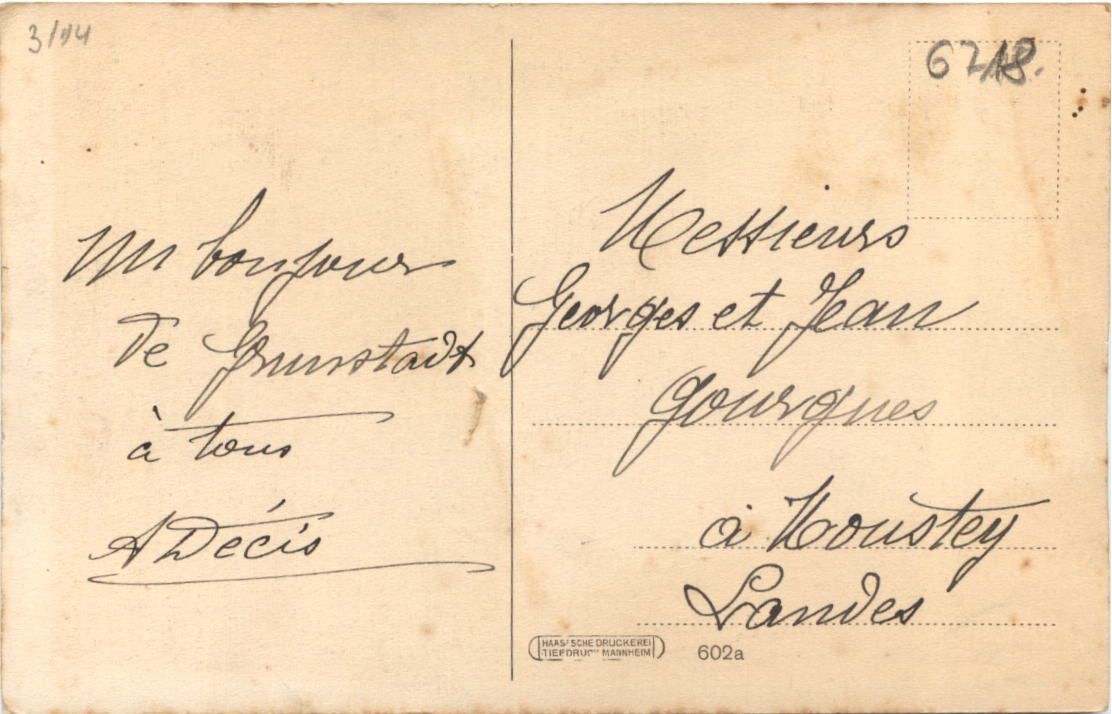 3/94
6218.
Un bonjour
de Grunstadt
à tous
A Décis
Messieurs
Georges et Jean
Gourgues
à Moustey
Landes
HAAS'SCHE DRUCKEREI
TIEFDRUCK MANNHEIM
602a